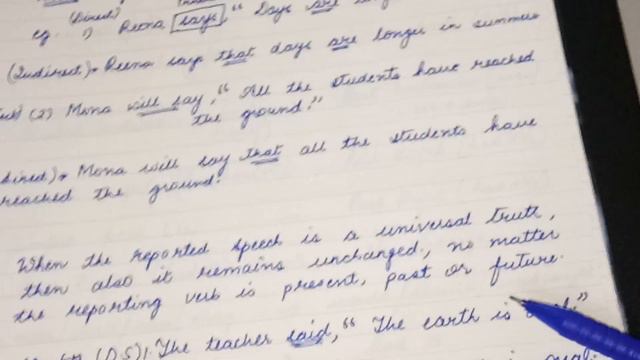 (Direct)
eg. 1) Reena says, " Days are long
(Indirect) → Reena says that days are longer in summer
(2) Mona will say, " All the students have reached
the ground."
Mona will say that all the students have
reached the ground.
When the reported speech is a universal truth,
then also it remains unchanged, no matter
the reporting verb is present, past or future.
(D.S): The teacher said, " The earth is